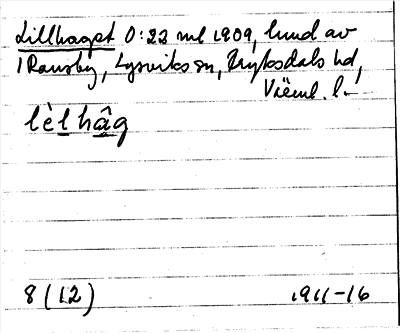 Lillhaget 0:22 ml 1909, lund av
1 Ransby, Lysviks sn, Fryksdals hd,
Värml. l.
lèlhâg
8 (12) 1911-16